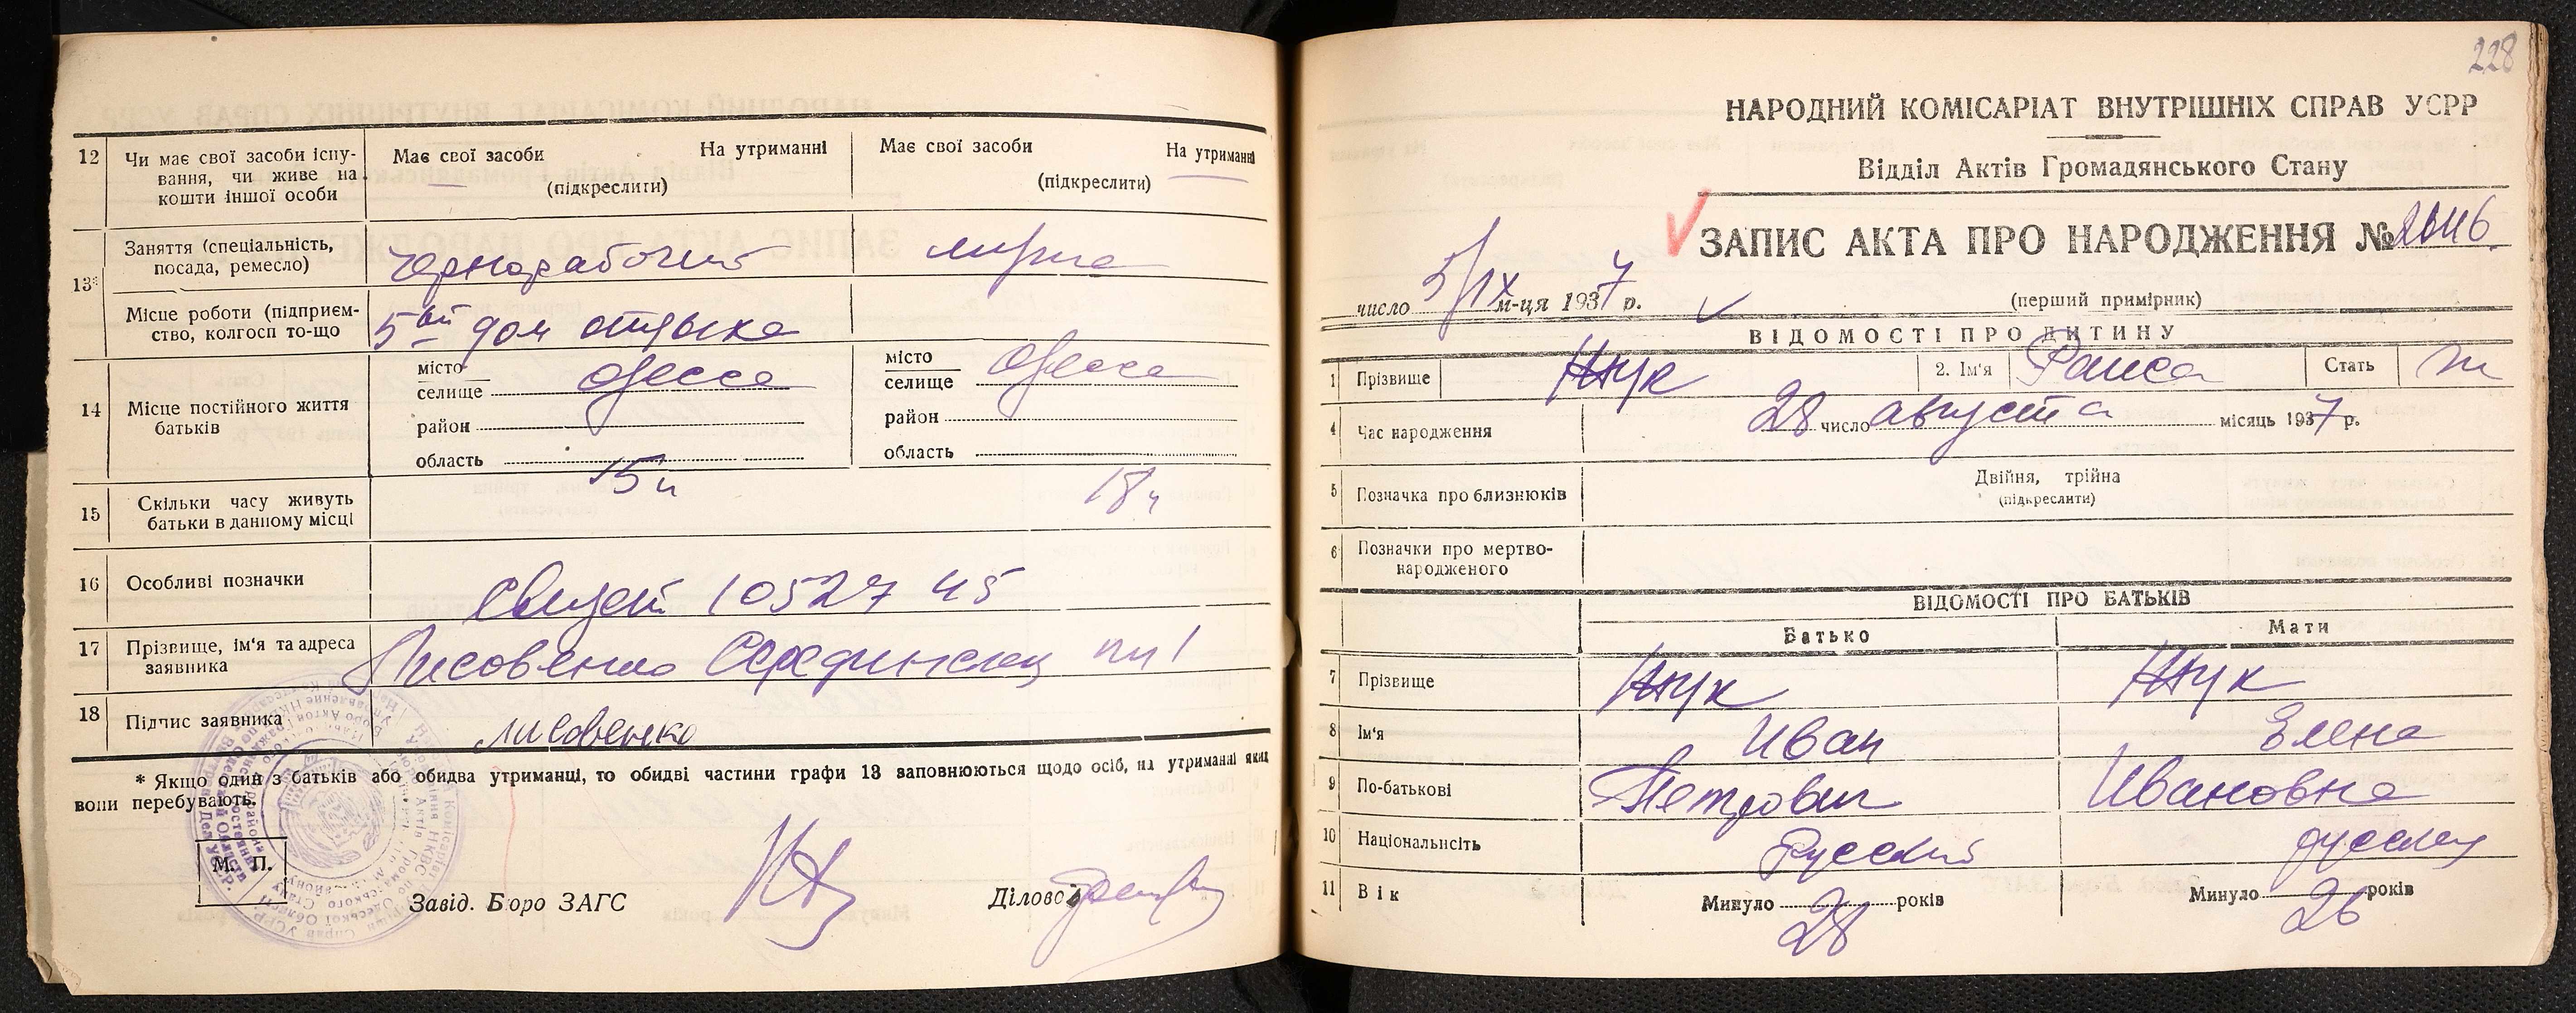 12 Чи має свої засоби існу-
вання, чи живе на
кошти іншої особи
Має свої засоби На утриманні
(підкреслити)
Має свої засоби На утриманні
(підкреслити)
13* Заняття (спеціальність,
посада, ремесло)
чернорабочий
Місце роботи (підприєм-
ство, колгосп то-що
5ый дом отдыха
14 Місце постійного життя
батьків
місто
селище Одесса
район
область
місто
селище Одесса
район
область
15 Скільки часу живуть
батьки в данному місці
15 л 18 л
16 Особливі позначки
1052745
17 Прізвище, ім'я та адреса
заявника
Лисовенко
18 Підпис заявника
Лисовенко
* Якщо один з батьків або обидва утриманці, то обидві частини графи 13 заповнюються щодо осіб, на утриманні яких
вони перебувають.
М. П.
Завід. Бюро ЗАГС Діловод
228
НАРОДНИЙ КОМІСАРІАТ ВНУТРІШНІХ СПРАВ УСРР
Відділ Актів Громадянського Стану
ЗАПИС АКТА ПРО НАРОДЖЕННЯ № 2646.
число 5/IX м-ця 1937 р. (перший примірник)
ВІДОМОСТІ ПРО ДИТИНУ
1 Прізвище Жук 2. Ім'я Раиса Стать ж
4 Час народження 28 число августа місяць 1937 р.
5 Позначка про близнюків Двійня, трійна
(підкреслити)
6 Позначки про мертво-
народженого
ВІДОМОСТІ ПРО БАТЬКІВ
Батько Мати
7 Прізвище Жук Жук
8 Ім'я Иван Елена
9 По-батькові Петрович Ивановна
10 Національність Русский русская
11 Вік Минуло 28 років Минуло 26 років